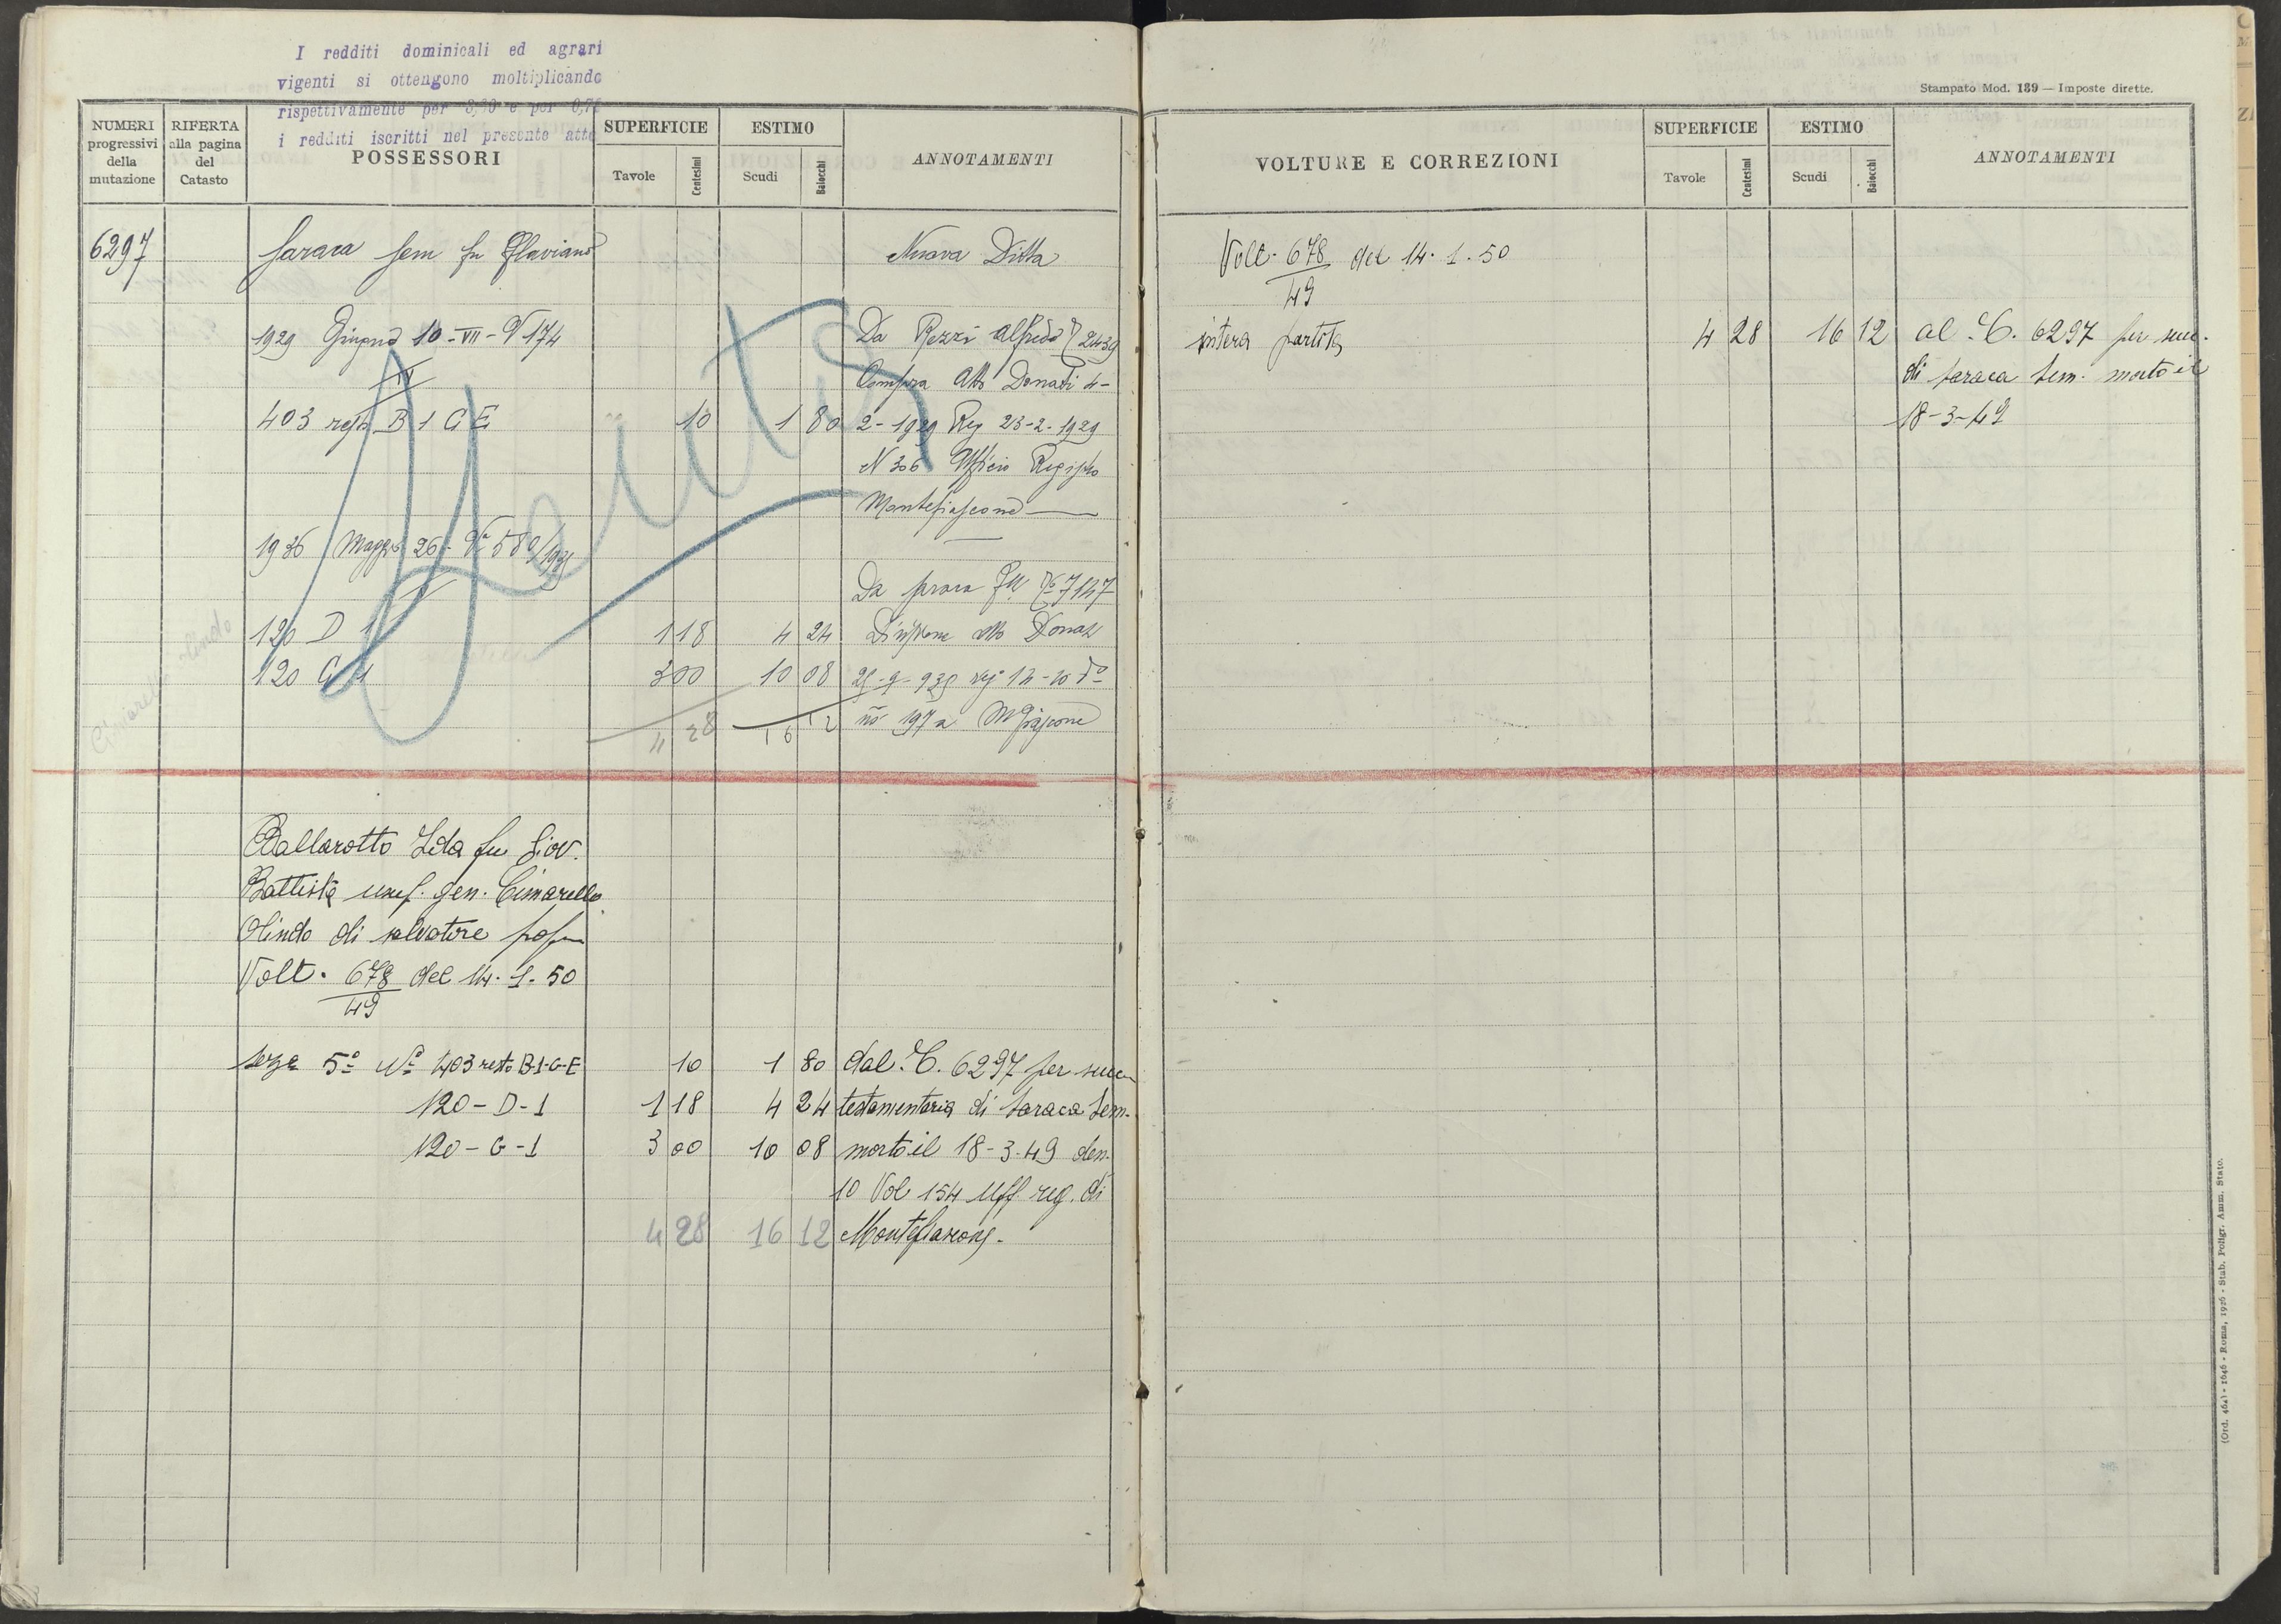 I redditi dominicali ed agrari
vigenti si ottengono moltiplicando
rispettivamente per e per
i redditi iscritti nel presente atto
NUMERI progressivi della mutazione
RIFERTA alla pagina del Catasto
POSSESSORI
SUPERFICIE
Tavole Centesimi
ESTIMO
Scudi Baiocchi
ANNOTAMENTI
6297 Saraca Sem fu Flaviano Nuova Ditta
1929 Giugno 10-VII- N 174 Da Rezzi Alfredo 2439
IV Compra Atto Donati 4-
403 resto B 1 G E 10 1 80 2-1929 Reg 23-2-1929
N 306 Ufficio Registro
Montefiascone
1936 Maggio 26- No
Da 7147
120 D 1 1 18 4 24 Divisione atto Donati
120 G 1 3 00 10 08
4 28 16 12
Ballarotto Leda fu Giov.
Battista usuf. gen. Cimarello
Olindo di Salvatore
Volt. 678/49 del 14.1.50
Sez 5a No 403 resto B-1-G-E 10 1 80 dal C. 6297 per succ
120-D-1 1 18 4 24 testamentaria di Saraca Sem.
120-G-1 3 00 10 08 morto il 18-3-49 den.
10 Vol 154 Uff reg. di
4 28 16 12 Montefiascone.
Stampato Mod. 139 — Imposte dirette.
VOLTURE E CORREZIONI
SUPERFICIE
Tavole Centesimi
ESTIMO
Scudi Baiocchi
ANNOTAMENTI
Volt. 678/49 del 14.1.50
intera partita 4 28 16 12 al C. 6297 per succ.
di Saraca Sem. morto il
18-3-49
(Ord. 464) - 1646 - Roma, 1926 - Stab. Poligr. Amm. Stato.